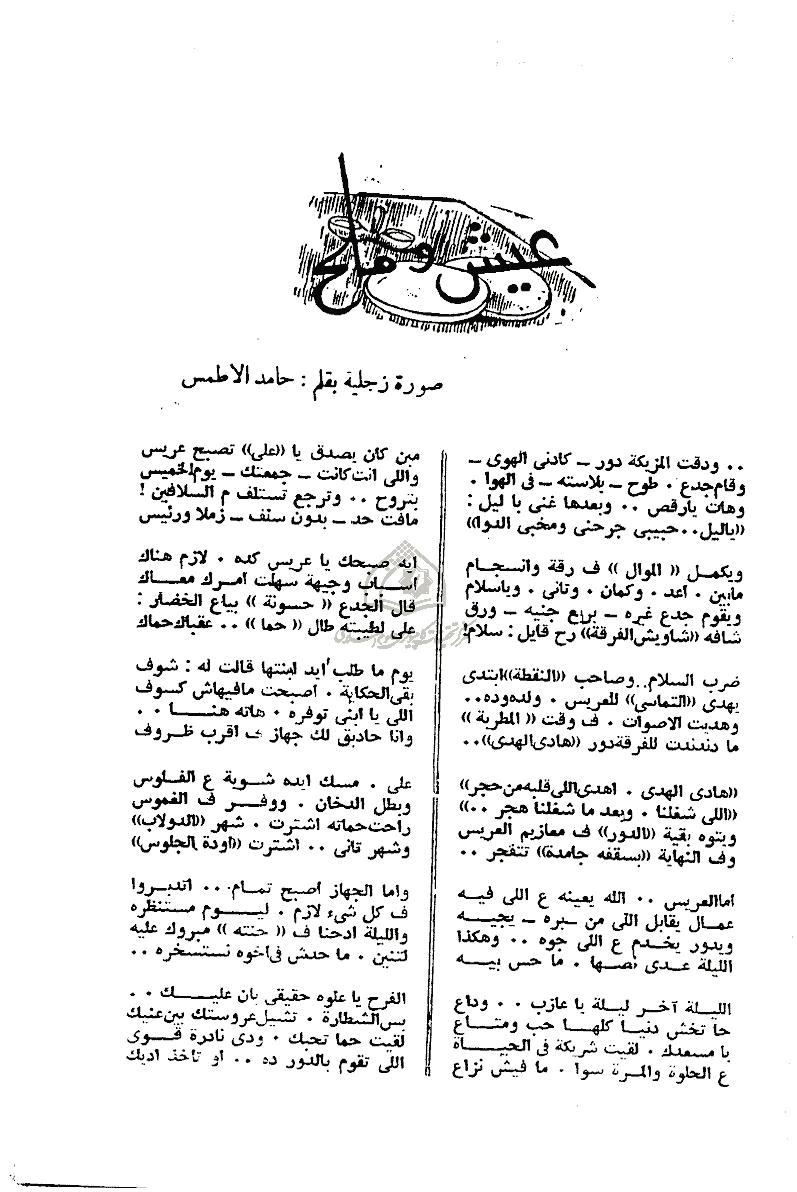 عيش وملح
صورة زجلية بقلم : حامد الاطمس
٠٠ ودقت المزيكة دور ــ كادنى الهوى ــ
وقام جدع ٠ طوح ــ بلاسته ــ فى الهوا ٠
وهات يارقص ٠٠ وبعدها غنى با ليل :
((ياليل٠٠حبيبى جرحنى ومخبى الدوا))
ويكمل (( الموال )) ف رقة وانسجام
مابين ٠ أعد ٠ وكمان ٠ وتانى ٠ وياسلام
ويقوم جدع غيره ــ بربع جنيه ــ ورق
شافه ((شاويش الفرقة)) رح قايل : سلام!
ضرب السلام٠٠وصاحب ((النقطة))ابتدى
يهدى ((التماسى)) للعريس ٠ ولده وده٠٠
وهديت الاصوات ٠ ف وقت (( المطربة ))
ما دندنت للفرقة دور ((هادى الهدى))٠٠
((هادى الهدى ٠ اهدى اللى قلبه من حجر))
((اللى شغلنا ٠ وبعد ما شغلنا هجر ٠٠))
ويتوه بقية ((الدور)) ف معازيم العريس
وف النهاية ((بسقفه جامدة)) تنفجر ٠٠
اما العريس ٠٠ الله يعينه ع اللى فيه
عمال يقابل اللى من بره ــ يجيه
ويدور يخدم ع اللى جوه ٠٠ وهكذا
الليلة عدى نصها ٠ ما حس بيه
الليلة آخر ليلة يا عازب ٠٠ وداع
حا تخش دنيا كلها حب ومتاع
يا مسعدك ٠ لقيت شريكة فى الحياة
ع الحلوة والمرة سوا ٠ ما فيش نزاع
مين كان يصدق يا ((على)) تصبح عريس
واللى انت كانت ــ جمعتك ــ يوم الخميس
بتروح ٠٠ وترجع تستلف م السلافين !
مافت حد ــ بدون سلف ــ زملا ورئيس
ايه صبحك يا عريس كده ٠ لازم هناك
أسباب وجيهة سهلت أمرك معاك
قال الجدع (( حسونة )) بياع الخضار :
على لطيبته طال (( حما )) ٠٠ عقباك حماك
يوم ما طلب ايد ابنتها قالت له : شوف
بقى الحكاية ٠ أصبحت مافيهاش كسوف
اللى يا ابنى توفره ٠ هاته هنا ٠٠
وانا حادبق لك جهاز ف اقرب ظروف
على ٠ مسك ايده شوية ع الفلوس
وبطل الدخان ٠ ووفر ف الغموس
راحت حماته اشترت ٠ شهر ((الدولاب))
وشهر تانى ٠٠ اشترت ((أودة الجلوس))
واما الجهاز أصبح تمام٠٠٠ اتدبروا
ف كل شىء لازم ٠ ليوم مستنظره
والليلة ادحنا ف (( حنته )) مبروك عليه
لتنين ٠ ما حدش فى اخوه نستسخره ٠٠
الفرح يا علوه حقيقى بان عليك ٠٠
بس الشطارة ٠ تشيل عروستك بين عنيك
لقيت حما تحبك ٠ ودى نادرة قوى
اللى تقوم بالدور ده ٠٠ او تاخذ اديك